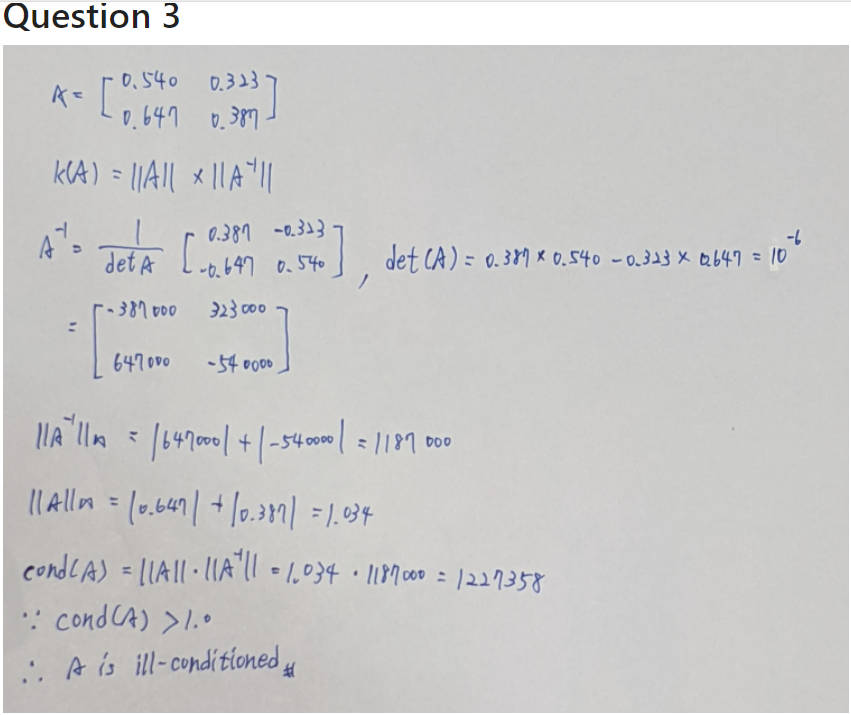 Question 3
A = [ 0.540 0.323
0.647 0.387 ]
k(A) = ||A|| × ||A⁻¹||
A⁻¹ = 1/det A [ 0.387 -0.323
-0.647 0.540 ] , det(A) = 0.387 × 0.540 - 0.323 × 0.647 = 10⁻⁶
= [ -387000 323000
647000 -540000 ]
||A⁻¹||∞ = |647000| + |-540000| = 1187000
||A||∞ = |0.647| + |0.387| = 1.034
cond(A) = ||A|| · ||A⁻¹|| = 1.034 · 1187000 = 1227358
∵ cond(A) > 1.0
∴ A is ill-conditioned #